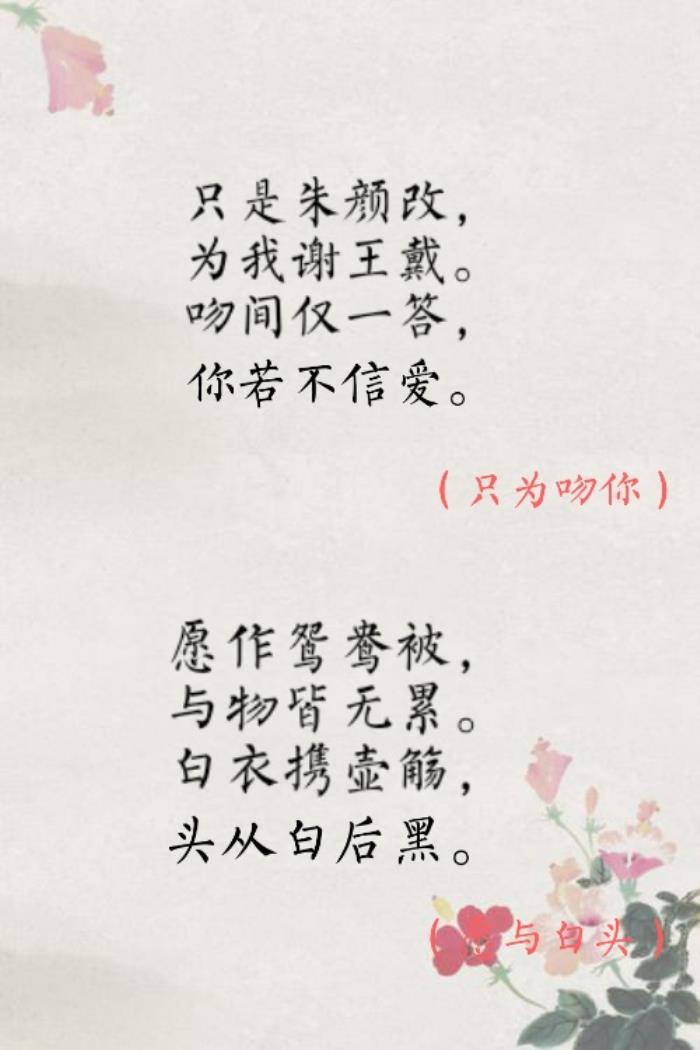 只是朱颜改，
为我谢王戴。
吻间仅一答，
你若不信爱。
（只为吻你）
愿作鸳鸯被，
与物皆无累。
白衣携壶觞，
头从白后黑。
（与白头）